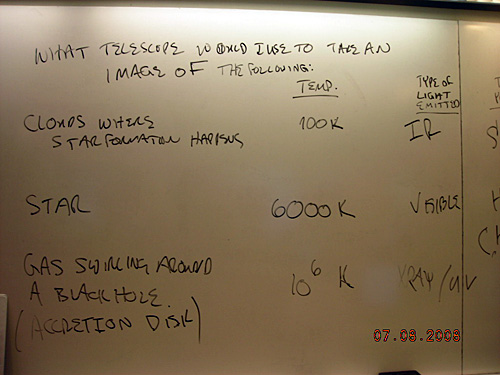 WHAT TELESCOPE WOULD I USE TO TAKE AN
IMAGE OF THE FOLLOWING:
TEMP.
TYPE OF
LIGHT
EMITTED
CLOUDS WHERE
STAR FORMATION HAPPENS
100K
IR
STAR
6000K
VISIBLE
GAS SWIRLING AROUND
A BLACK HOLE.
(ACCRETION DISK)
10⁶ K
XRAY/UV
07.08.2008